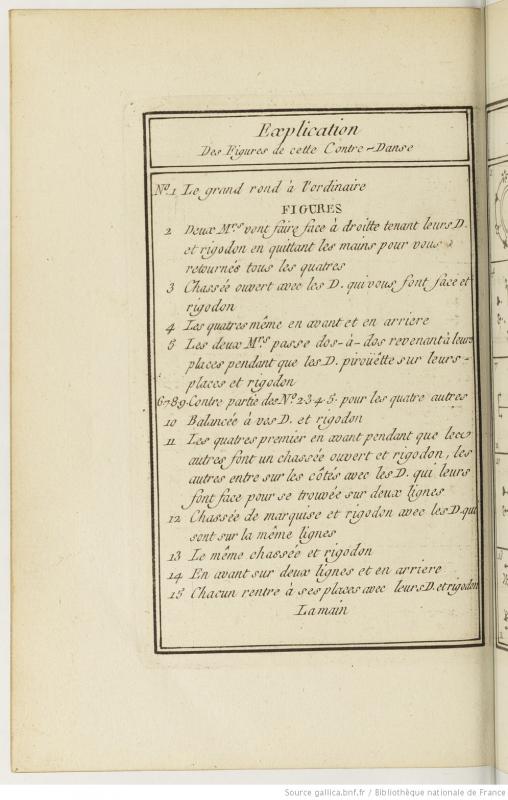 Explication
Des Figures de cette Contre-Danse
Nº.1 Le grand rond à l'ordinaire
FIGURES
2 Deux Mrs vont faire face à droitte tenant leurs D.
et rigodon en quittant les mains pour vous
retournés tous les quatres
3 Chassée ouvert avec les D. qui vous font face et
rigodon
4 Les quatres même en avant et en arriere
5 Les deux Mrs passe dos-à-dos revenant à leurs
places pendant que les D. piroüétte sur leurs-
places et rigodon
6·7·8·9·Contre partie des Nº 2·3·4·5· pour les quatre autres
10 Balancée à vos D. et rigodon
11 Les quatres premier en avant pendant que les
autres font un chassée ouvert et rigodon, les
autres entre sur les côtés avec les D. qui leurs
font face pour se trouvée sur deux lignes
12 Chassée de marquise et rigodon avec les D. qui
sont sur la même lignes
13 Le même chassée et rigodon
14 En avant sur deux lignes et en arriere
15 Chacun rentre à ses places avec leurs D. et rigodon
La main
Source gallica.bnf.fr / Bibliothèque nationale de France